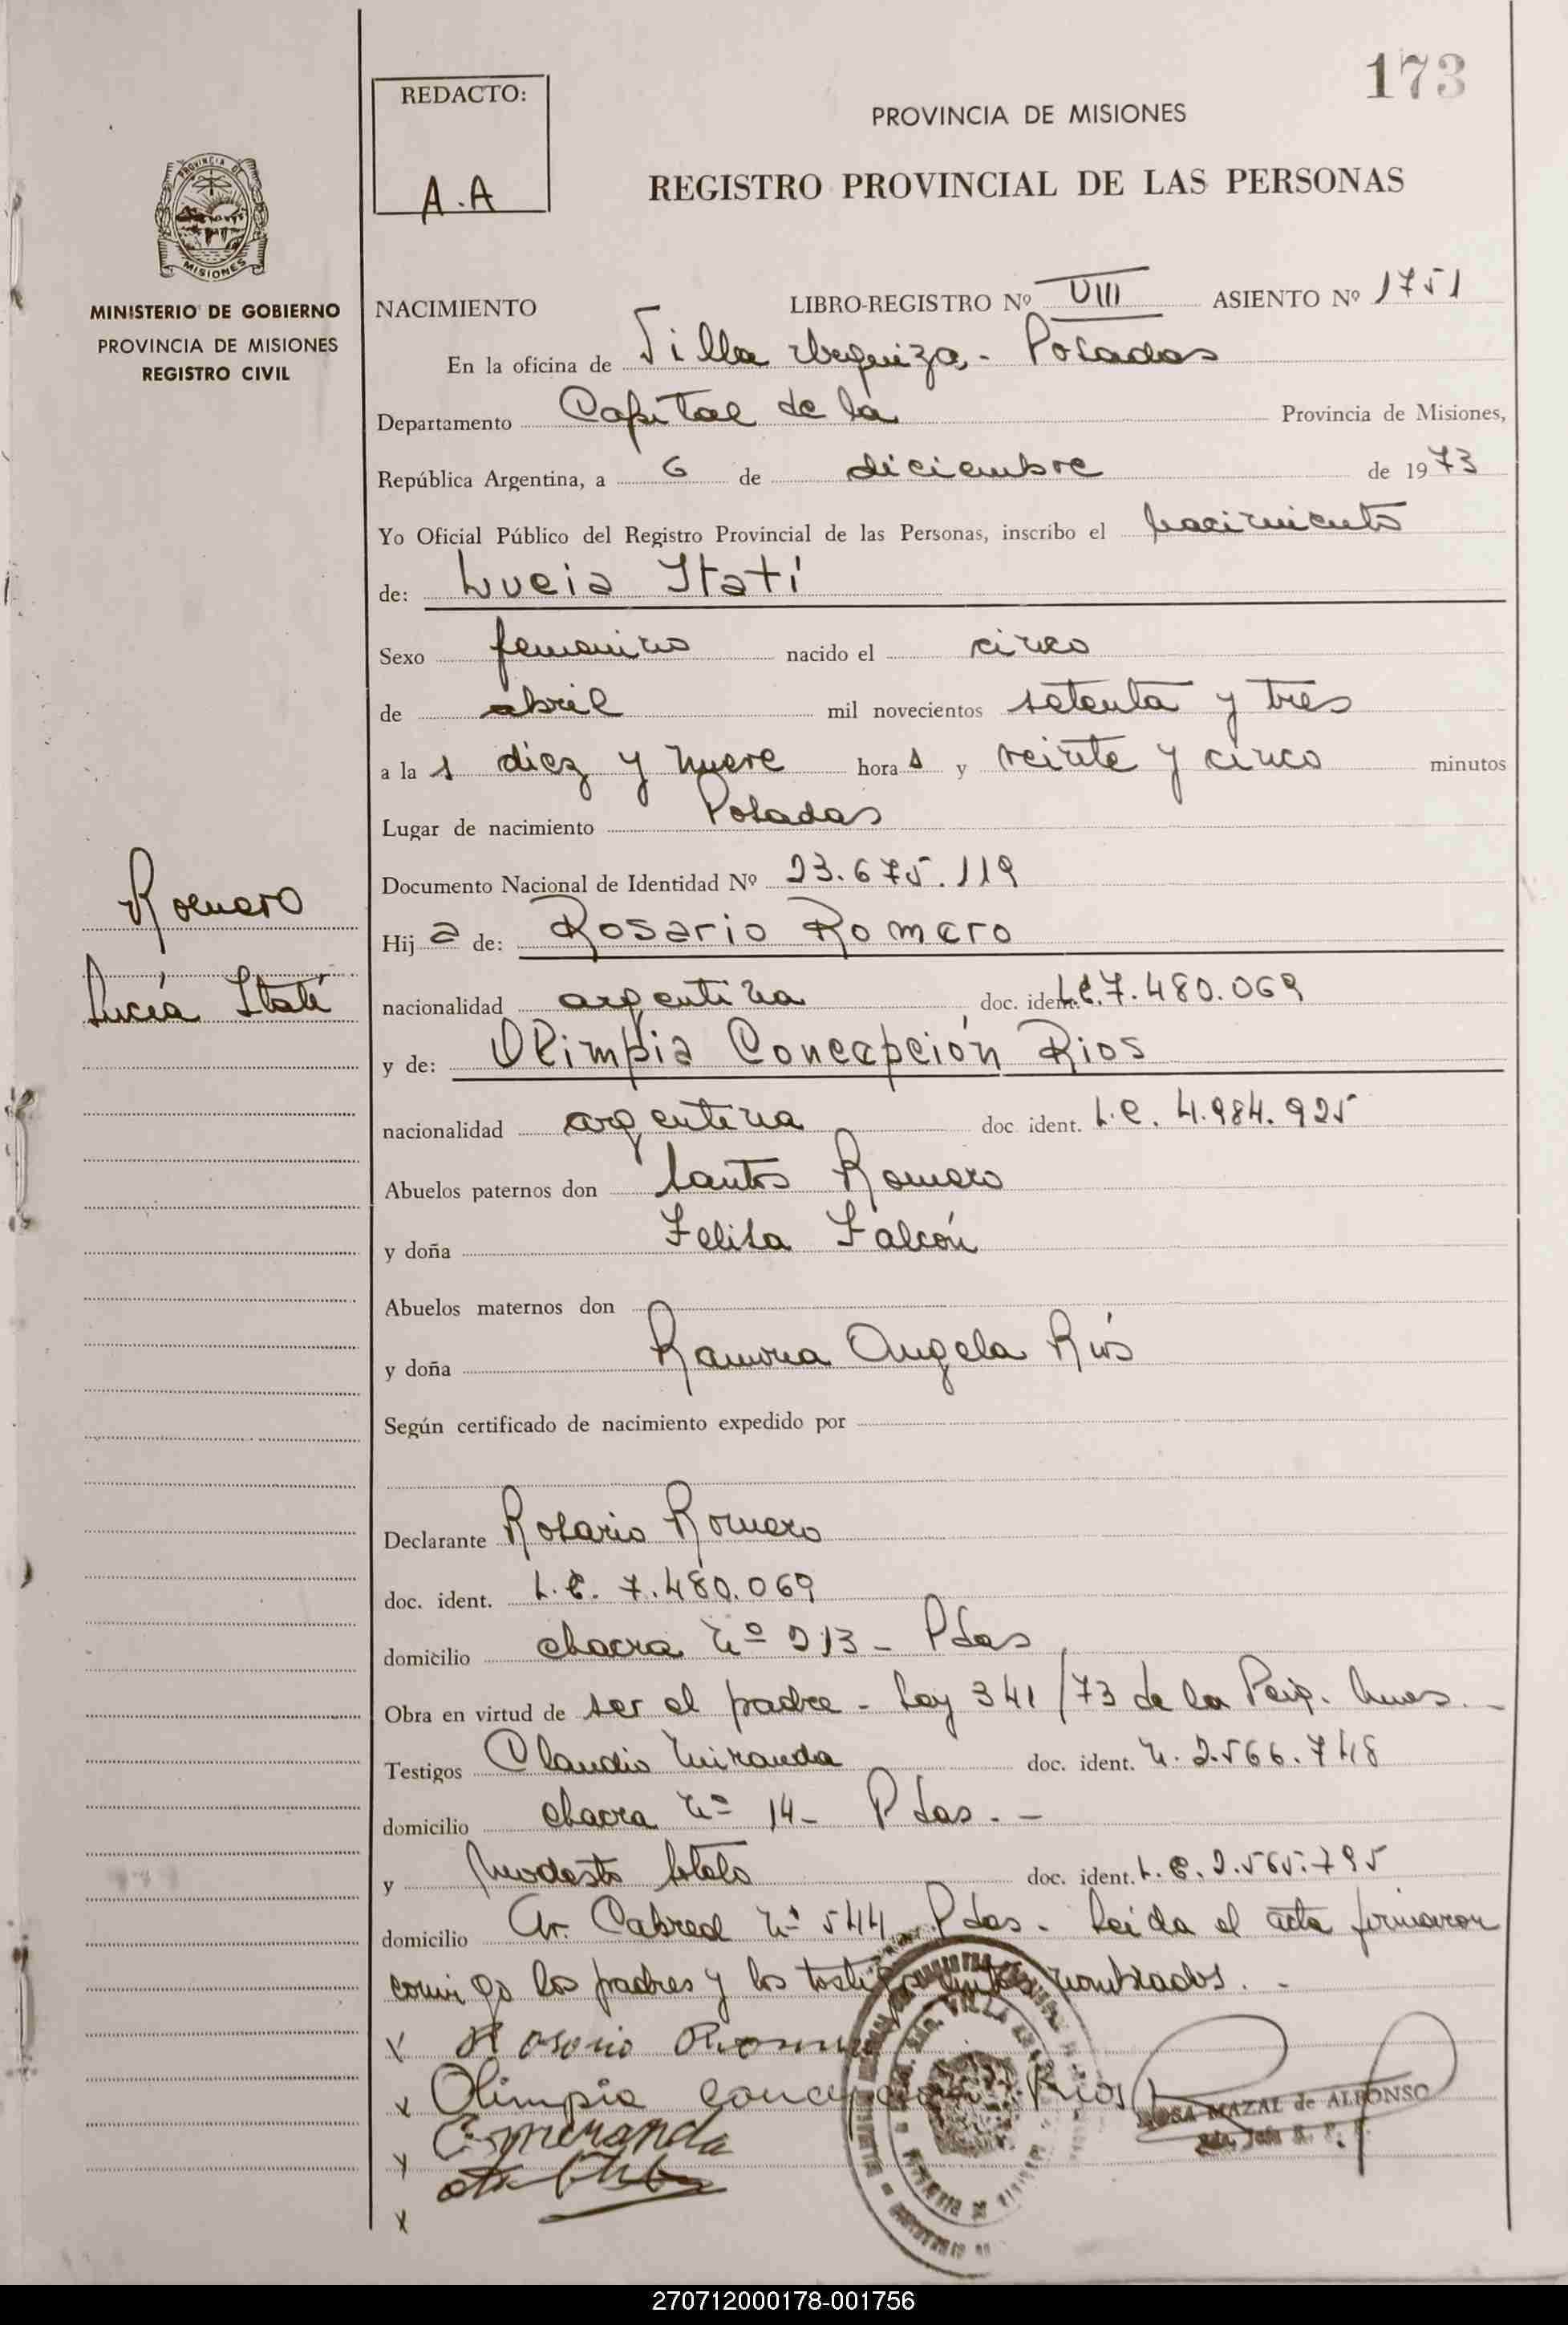 173
REDACTO:
A.A
PROVINCIA DE MISIONES
REGISTRO PROVINCIAL DE LAS PERSONAS
PROVINCIA DE
MISIONES
MINISTERIO DE GOBIERNO
PROVINCIA DE MISIONES
REGISTRO CIVIL
NACIMIENTO LIBRO-REGISTRO Nº VIII ASIENTO Nº 1751
En la oficina de Villa Urquiza - Posadas
Departamento Capital de la Provincia de Misiones,
República Argentina, a 6 de diciembre de 1973
Yo Oficial Público del Registro Provincial de las Personas, inscribo el nacimiento
de: Lucia Itatí
Sexo femenino nacido el cinco
de abril mil novecientos setenta y tres
a la s diez y nueve hora s y veinte y cinco minutos
Lugar de nacimiento Posadas
Documento Nacional de Identidad Nº 23.675.119
Romero
Lucía Itatí
Hij a de: Rosario Romero
nacionalidad argentina doc. ident. L.E. 7.480.069
y de: Olimpia Concepción Rios
nacionalidad argentina doc. ident. L.C. 4.984.925
Abuelos paternos don Santos Romero
y doña Felisa Falcón
Abuelos maternos don
y doña Ramona Angela Ríos
Según certificado de nacimiento expedido por
Declarante Rosario Romero
doc. ident. L.E. 7.480.069
domicilio chacra Nº 213 - Pdas
Obra en virtud de ser el padre - Ley 341/73 de la
Testigos Claudio Miranda doc. ident. 2.566.748
domicilio chacra Nº 14 - Pdas. -
y Modesto Sotelo doc. ident. L.E. 2.565.795
domicilio Av. Cabred Nº 544 Pdas - Leída el acta firmaron
conmigo los padres y los testigos nombrados. -
x Rosario Romero
x Olimpia Concepcion Rios
x C. Miranda
x
ROSA MAZAL de ALFONSO
270712000178-001756